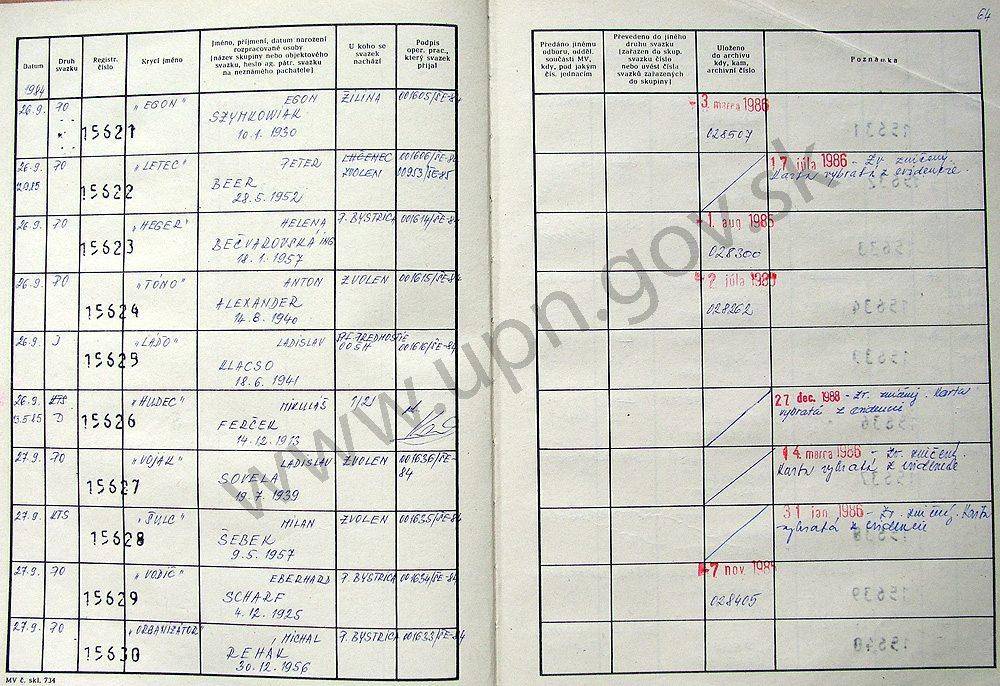 64
Datum
Druh svazku
Registr. číslo
Krycí jméno
Jméno, příjmení, datum narození rozpracované osoby
[název skupiny nebo objektového svazku, heslo ag. pátr. svazku na neznámého pachatele]
U koho se svazek nachází
Podpis oper. prac., který svazek přijal
Předáno jinému odboru, odděl. součásti MV, kdy, pod jakým čís. jednacím
Převedeno do jiného druhu svazku [zařazen do skup. svazku číslo nebo uvést čísla svazků zařazených do skupiny]
Uloženo do archivu kdy, kam, archivní číslo
Poznámka
1984
26.9. 70 15621 "EGON" EGON ŽILINA 001605/ŠE-84 3. marca 1986
SZYMKOWIAK
10.1.1930 028507
26.9. 70 15622 "LETEC" PETER LUČENEC 001606/ŠE-84 17 júla 1986 - Zv. zničený.
BEER ZVOLEN 00953/ŠE-85 Karta vybratá z evidencie.
28.5.1952
26.9. 70 15623 "HEGER" HELENA P. BYSTRICA 001614/ŠE-84 -1. aug 1985
BEČVAROVSKÁ ING
18.1.1957 028300
26.9. 70 15624 "TÓNO" ANTON ZVOLEN 001615/ŠE-84 2 júla 1985
ALEXANDER
14.8.1940 028262
26.9. 15625 "LAĎO" LADISLAV 001616/ŠE-84
KLACSO
18.6.1941
26.9. KTS 15626 "HUDEC" MIKULÁŠ 1/2 27 dec. 1988 - Zv. zničený. Karta
D FERČEK vybratá z evidencie
14.12.1913
27.9. 70 15627 "VOJAK" LADISLAV ZVOLEN 001636/ŠE-84 14. marca 1986 - Zv. zničený.
SOVELA Karta vybratá z evidencie
19.7.1939
27.9. KTS 15628 "ŠULC" MILAN ZVOLEN 001635/ŠE-84 31 jan. 1986 - Zv. zničený. Karta
ŠEBEK vybratá z evidencie
9.5.1957
27.9. 70 15629 "VODIČ" EBERHARD P. BYSTRICA 001634/ŠE-84 -7 nov. 1985
SCHARF
4.12.1925 028405
27.9. 70 15630 "ORGANIZÁTOR" MICHAL P. BYSTRICA 001633/ŠE-84
REHÁK
30.12.1956
MV č. skl. 734
www.upn.gov.sk